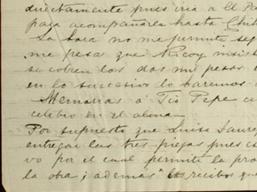 directamente pues iria a el Pa
para acompañarle hasta Chih
La Sara no me permite se
me pesa que Nicoy insist
se cobren los dos mil pesos
en lo sucesivo lo haremos
Memorias a Tio Pepe
celebro en el alma
Por supuesto que Luisa Saurez
entregar las tres piezas pues es
vo por el cual permite la pro
la obra; además los recibos que